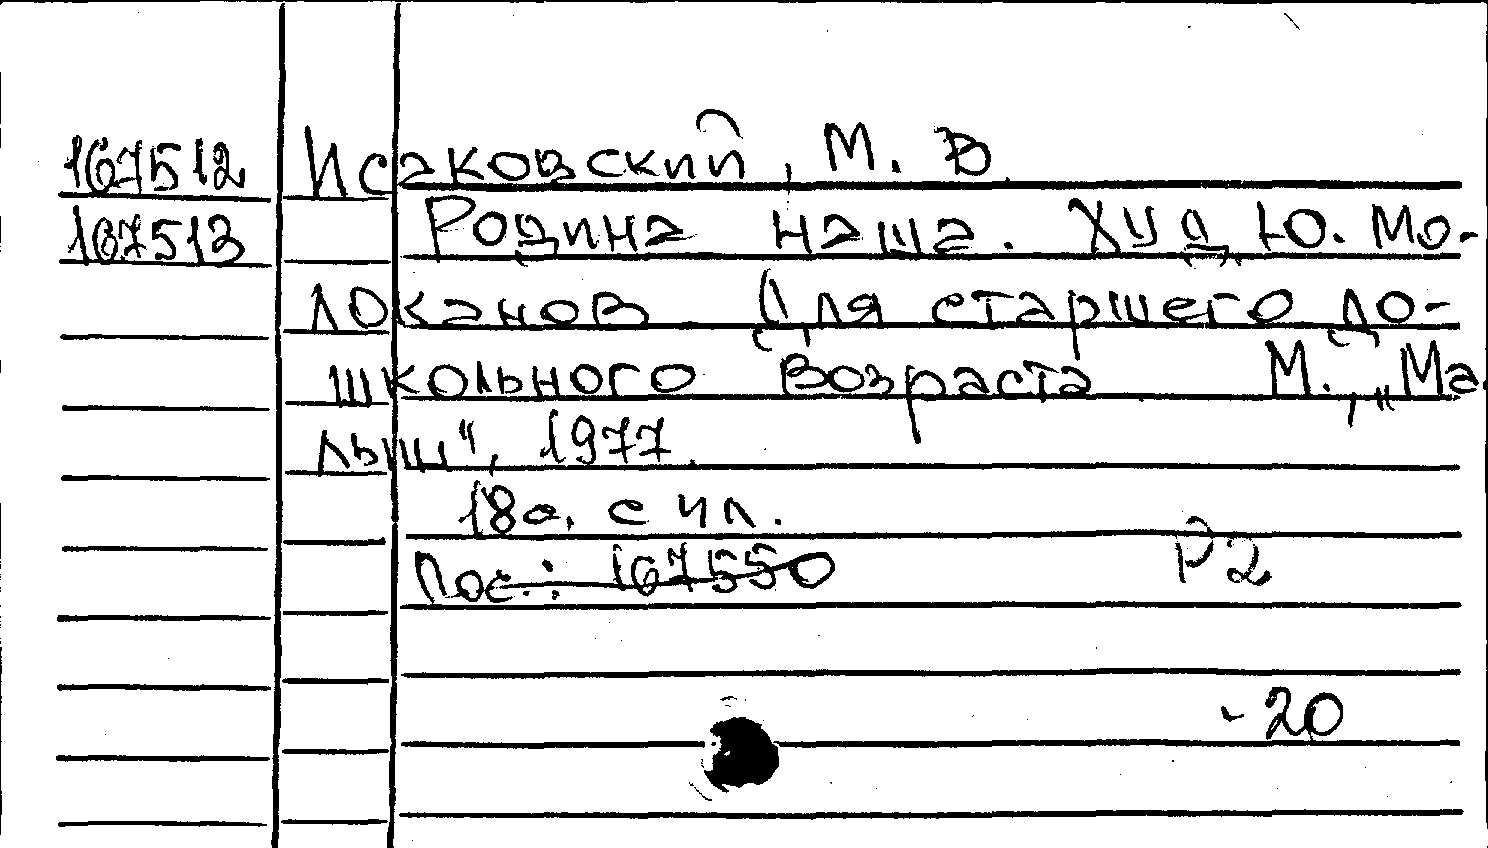 167512 Исаковский, М. В.
167513 Родина наша. Худ. Ю. Мо-
локанов Для старшего до-
школьного возраста М., „Ма
лыш", 1977.
18с. с ил.
Пос.: 167550 Р2
-20